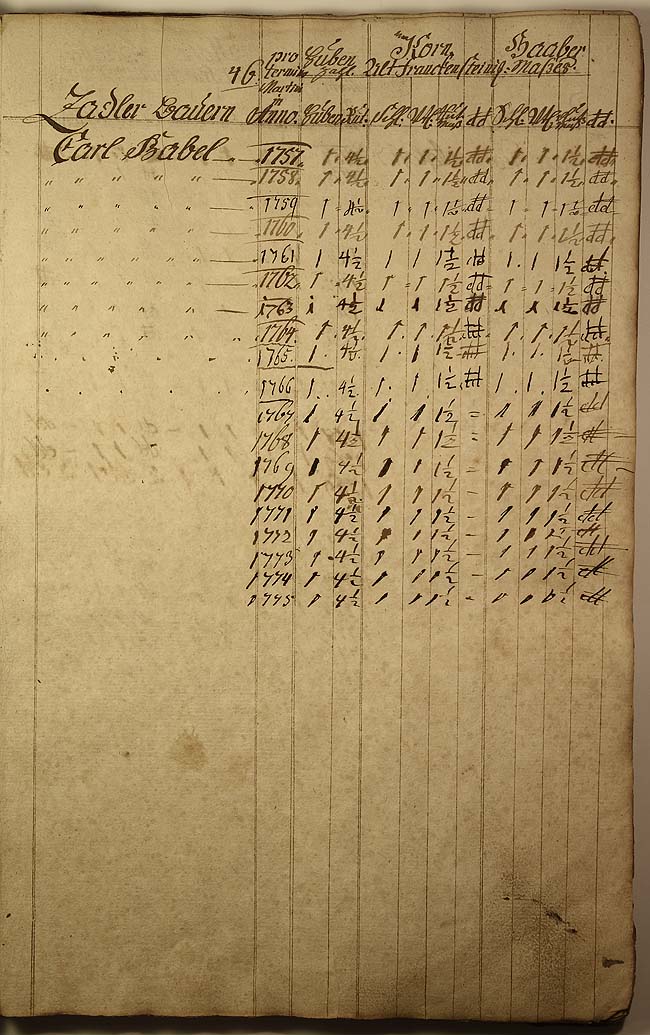 46. pro Huben Korn, Haaber
termin Zahl. Alt Franckensteinis. Maßes.
Martini
in
Zadler Bauern Anno. Huben Schl. dd Schl. dd.
Carl Babel 1757. 1 4½ 1 1 1½ dd. 1 1 1½ dd.
" " " " 1758. 1 4½ 1 1 1½ dd 1 1 1½ dd.
" " " " 1759 1 4½ 1 1 1½ dd 1 1 1½ dd
" " " " 1760. 1 4½ 1 1 1½ dd. 1 1 1½ dd.
" " " " 1761 1 4½ 1 1 1½ dd 1. 1 1½ dd.
" " " " 1762 1 4½ 1 1 1½ dd 1 1 1½ dd.
" " " " 1763 1 4½ 1 1 1½ dd 1 1 1½ dd
" " " " 1764 1 4½ 1 1 1½ dd. 1 1 1½ dd.
" " " " 1765. 1. 4½ 1. 1 1½ dd 1. 1. 1½ dd.
1766 1. 4½ 1. 1. 1½ dd 1. 1. 1½ dd
1767 1 4½ 1 1 1½ = 1 1 1½ dd
1768 1 4½ 1 1 1½ = 1 1 1½ dd
1769 1 4½ 1 1 1½ - 1 1 1½ dd
1770 1 4½ 1 1 1½ - 1 1 1½ dd
1771 1 4½ 1 1 1½ - 1 1 1½ dd
1772 1 4½ 1 1 1½ - 1 1 1½ dd
1773 1 4½ 1 1 1½ - 1 1 1½ dd
1774 1 4½ 1 1 1½ - 1 1 1½ dd
1775 1 4½ 1 1 1½ - 1 1 1½ dd